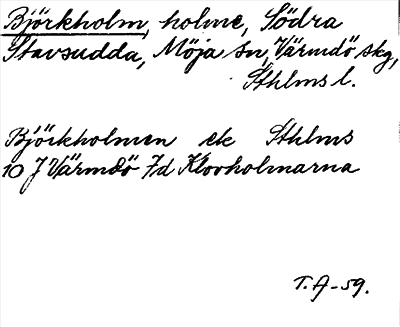 Björkholm, holme, Södra
Stavsudda, Möja sn, Värmdö skg,
Sthlms l.
Björkholmen ek Sthlms
10 J Värmdö 7d Klovholmarna
T. A-59.